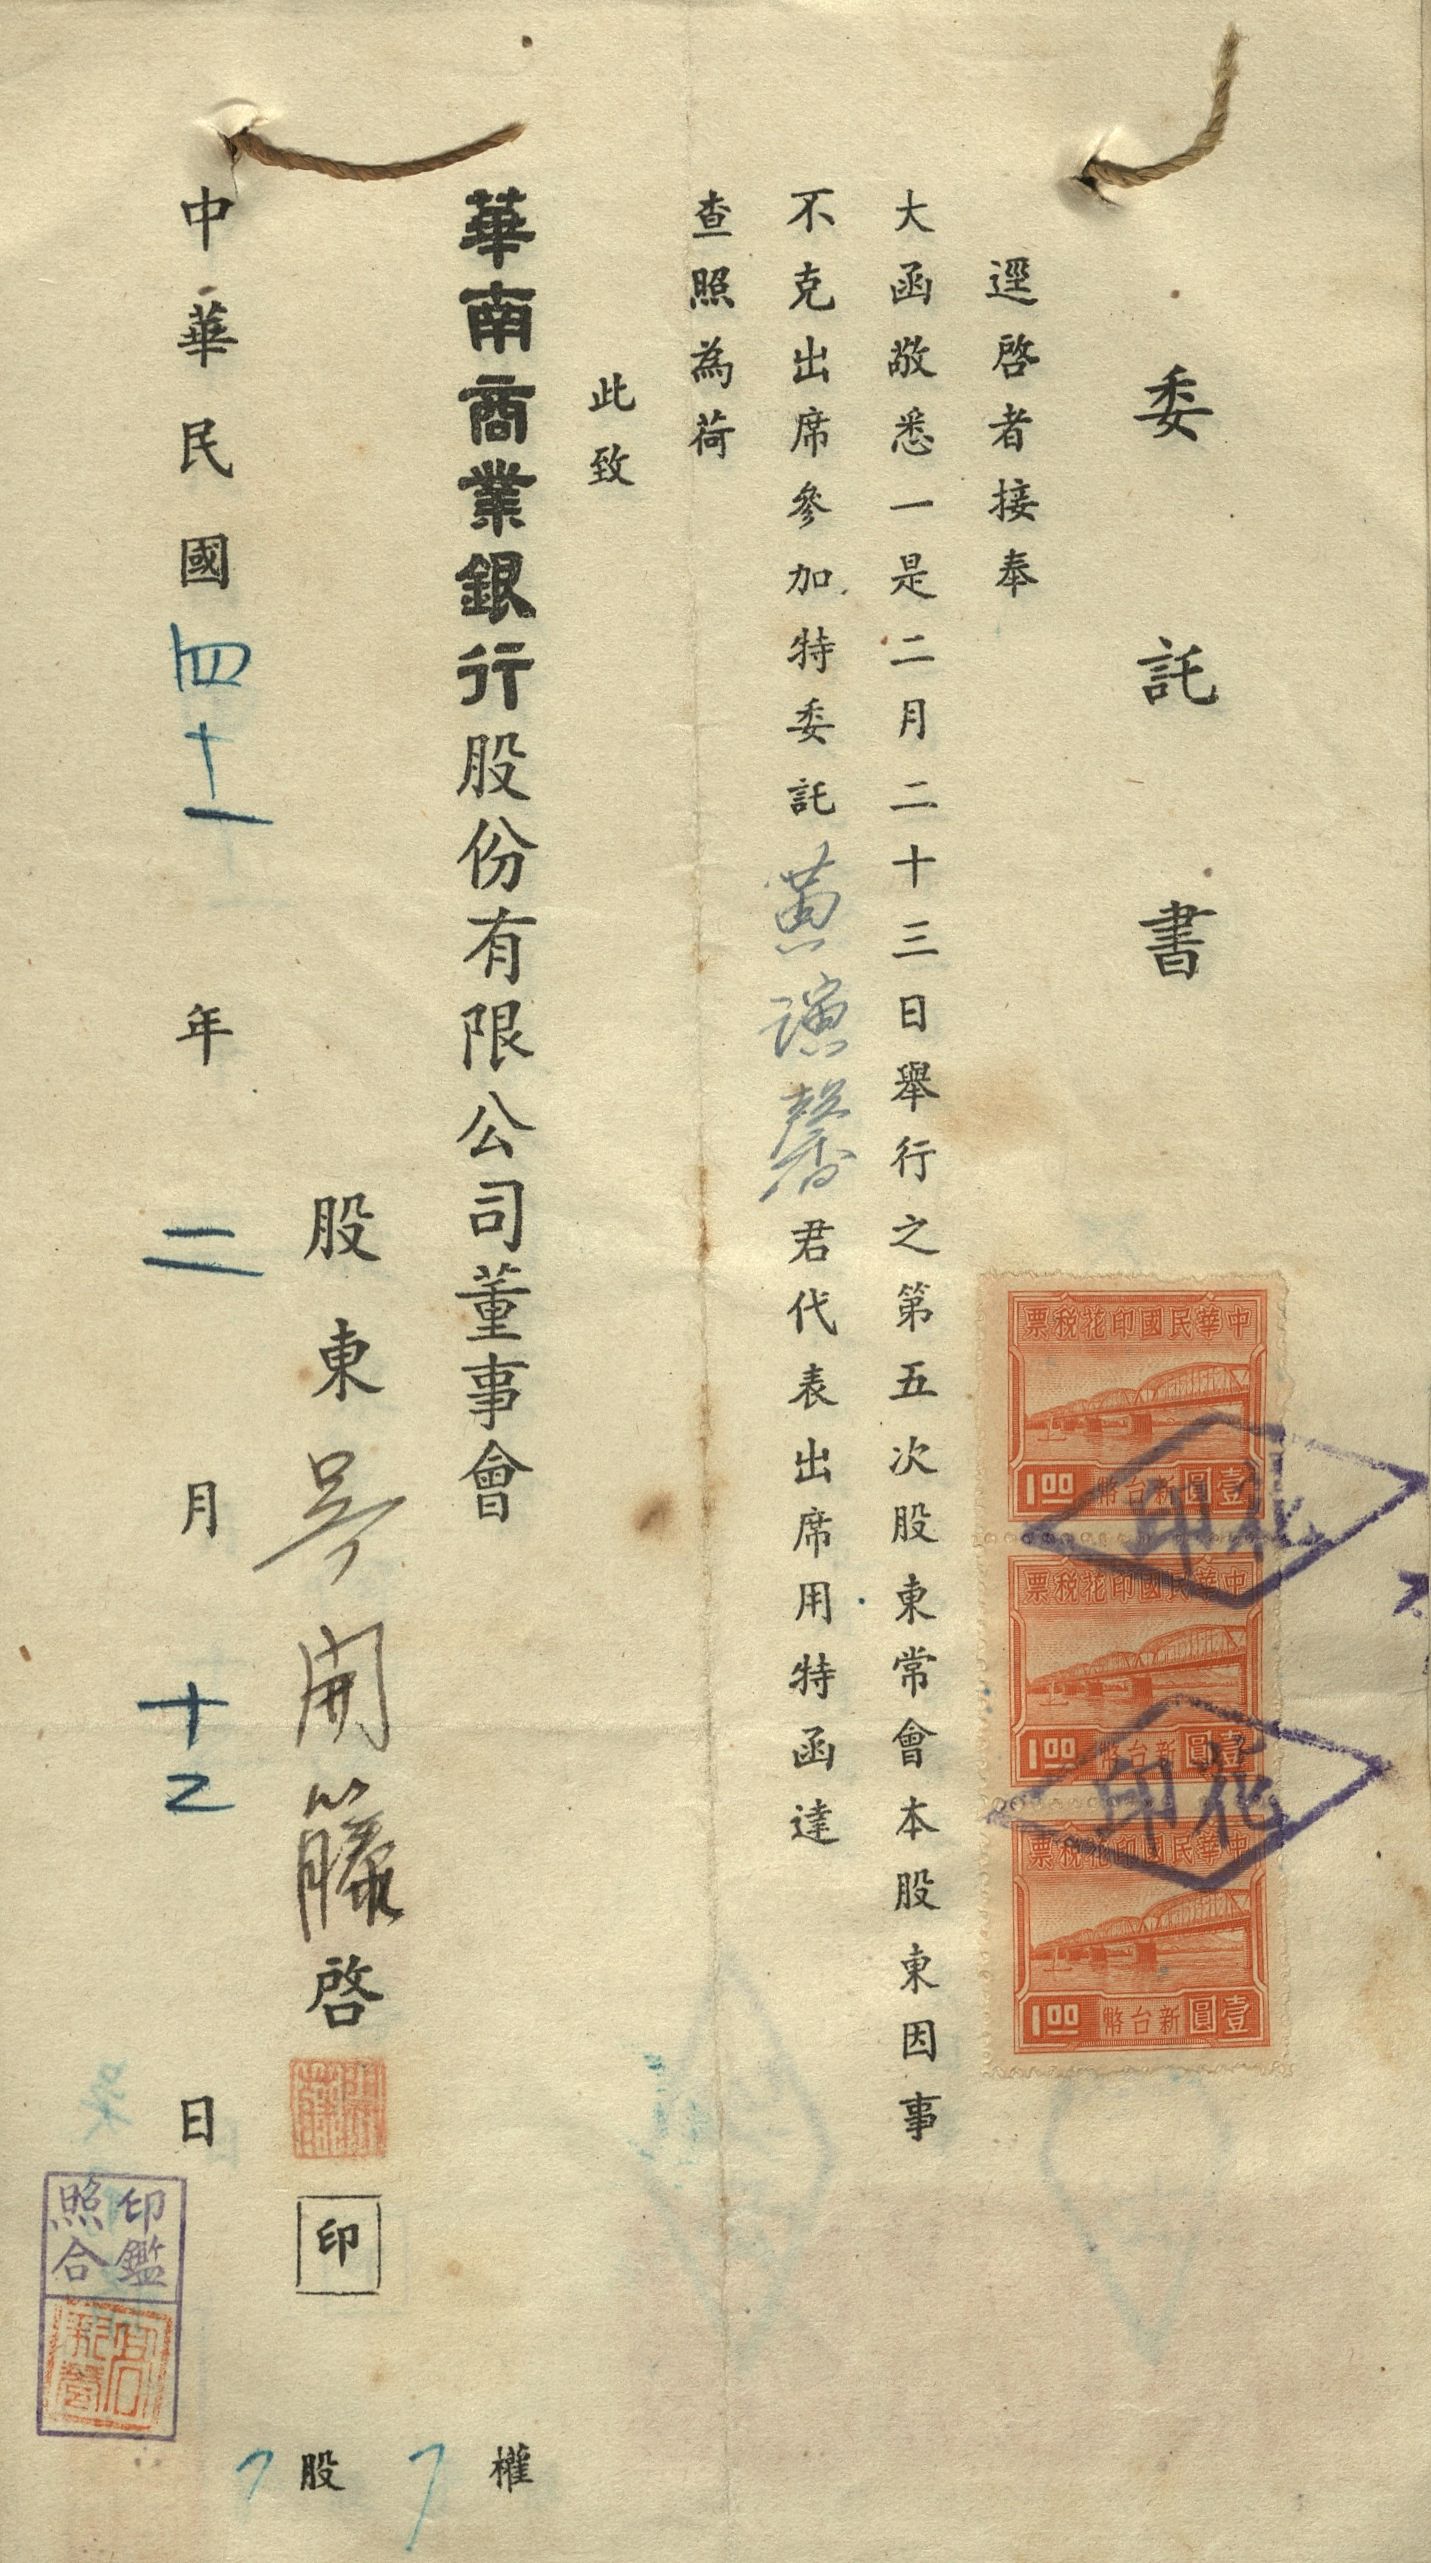 委託書
逕啓者接奉
大函敬悉一是二月二十三日舉行之第五次股東常會本股東因事
不克出席參加特委託黃演馨君代表出席用特函達
查照為荷
此致
華南商業銀行股份有限公司董事會
股東吳開籐啓
印
7股7權
中華民國四十一年二月十乙日
中華民國印花稅票
1.00 壹圓新台幣
花印
中華民國印花稅票
1.00 壹圓新台幣
花印
中華民國印花稅票
1.00 壹圓新台幣
印鑑
照合